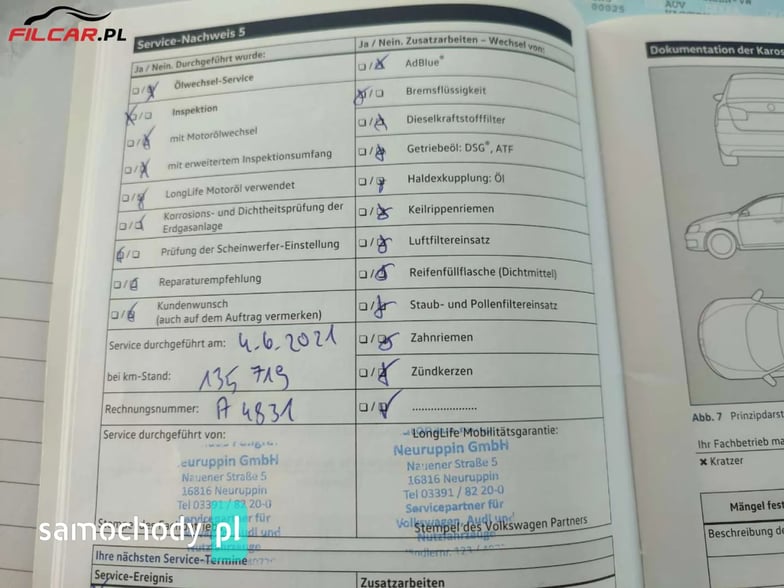 FILCAR.PL
Service-Nachweis 5
Ja / Nein. Durchgeführt wurde:
Ölwechsel-Service
Inspektion
mit Motorölwechsel
mit erweitertem Inspektionsumfang
LongLife Motoröl verwendet
Korrosions- und Dichtheitsprüfung der
Erdgasanlage
Prüfung der Scheinwerfer-Einstellung
Reparaturempfehlung
Kundenwunsch
(auch auf dem Auftrag vermerken)
Service durchgeführt am: 4.6.2021
bei km-Stand: 135 719
Rechnungsnummer: A 4831
Service durchgeführt von:
Neuruppin GmbH
Nauener Straße 5
16816 Neuruppin
Tel 03391 / 82 20-0
Servicepartner für
und
Nutzfahrzeuge
samochody.pl
Ihre nächsten Service-Termine
Service-Ereignis
Ja / Nein. Zusatzarbeiten – Wechsel von:
AdBlue®
Bremsflüssigkeit
Dieselkraftstofffilter
Getriebeöl: DSG®, ATF
Haldexkupplung: Öl
Keilrippenriemen
Luftfiltereinsatz
Reifenfüllflasche (Dichtmittel)
Staub- und Pollenfiltereinsatz
Zahnriemen
Zündkerzen
.....................
LongLife Mobilitätsgarantie:
Neuruppin GmbH
Nauener Straße 5
16816 Neuruppin
Tel 03391 / 82 20-0
Servicepartner für
Volkswagen, Audi und
Nutzfahrzeuge
Stempel des Volkswagen Partners
Zusatzarbeiten
00025
AUV
Dokumentation der Karos
Abb. 7 Prinzipdarst
Ihr Fachbetrieb ma
✖ Kratzer
Mängel fest
Beschreibung de